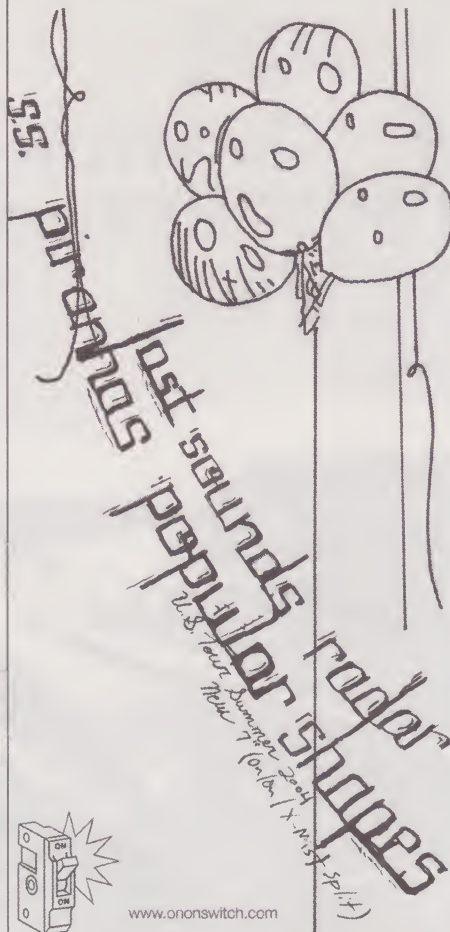 s.s. piranhas
lost sounds
popular shapes
radar
U.S. Tour Summer 2004
New 7" (on/on / X-Mist split)
ON
NO
www.ononswitch.com